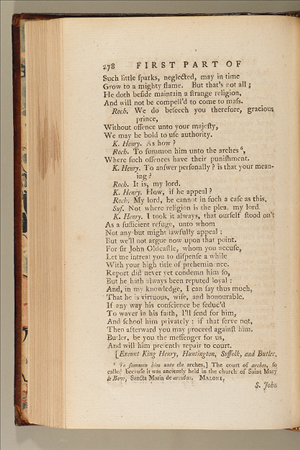 278 FIRST PART OF
Such little sparks, neglected, may in time
Grow to a mighty flame. But that's not all;
He doth beside maintain a strange religion,
And will not be compell'd to come to mass.
Roch. We do beseech you therefore, gracious
prince,
Without offence unto your majesty,
We may be bold to use authority.
K. Henry. As how?
Roch. To summon him unto the arches⁶,
Where such offences have their punishment.
K. Henry. To answer personally? is that your mean-
ing?
Roch. It is, my lord.
K. Henry. How, if he appeal?
Roch. My lord, he cannot in such a case as this,
Suf. Not where religion is the plea, my lord.
K. Henry. I took it always, that ourself stood on't
As a sufficient refuge, unto whom
Not any but might lawfully appeal:
But we'll not argue now upon that point.
For sir John Oldcastle, whom you accuse,
Let me intreat you to dispense a while
With your high title of preheminence.
Report did never yet condemn him so,
But he hath always been reputed loyal:
And, in my knowledge, I can say thus much,
That he is virtuous, wife, and honourable.
If any way his conscience be seduc'd
To waver in his faith, I'll send for him,
And school him privately: if that serve not,
Then afterward you may proceed against him.
Butler, be you the messenger for us,
And will him presently repair to court.
[Exeunt King Henry, Huntington, Suffolk, and Butler.
⁶ To summon him unto the arches.] The court of arches, so
called because it was anciently held in the church of Saint Mary
le Bow, Sancta Maria de arcubus. MALONE.
S. John